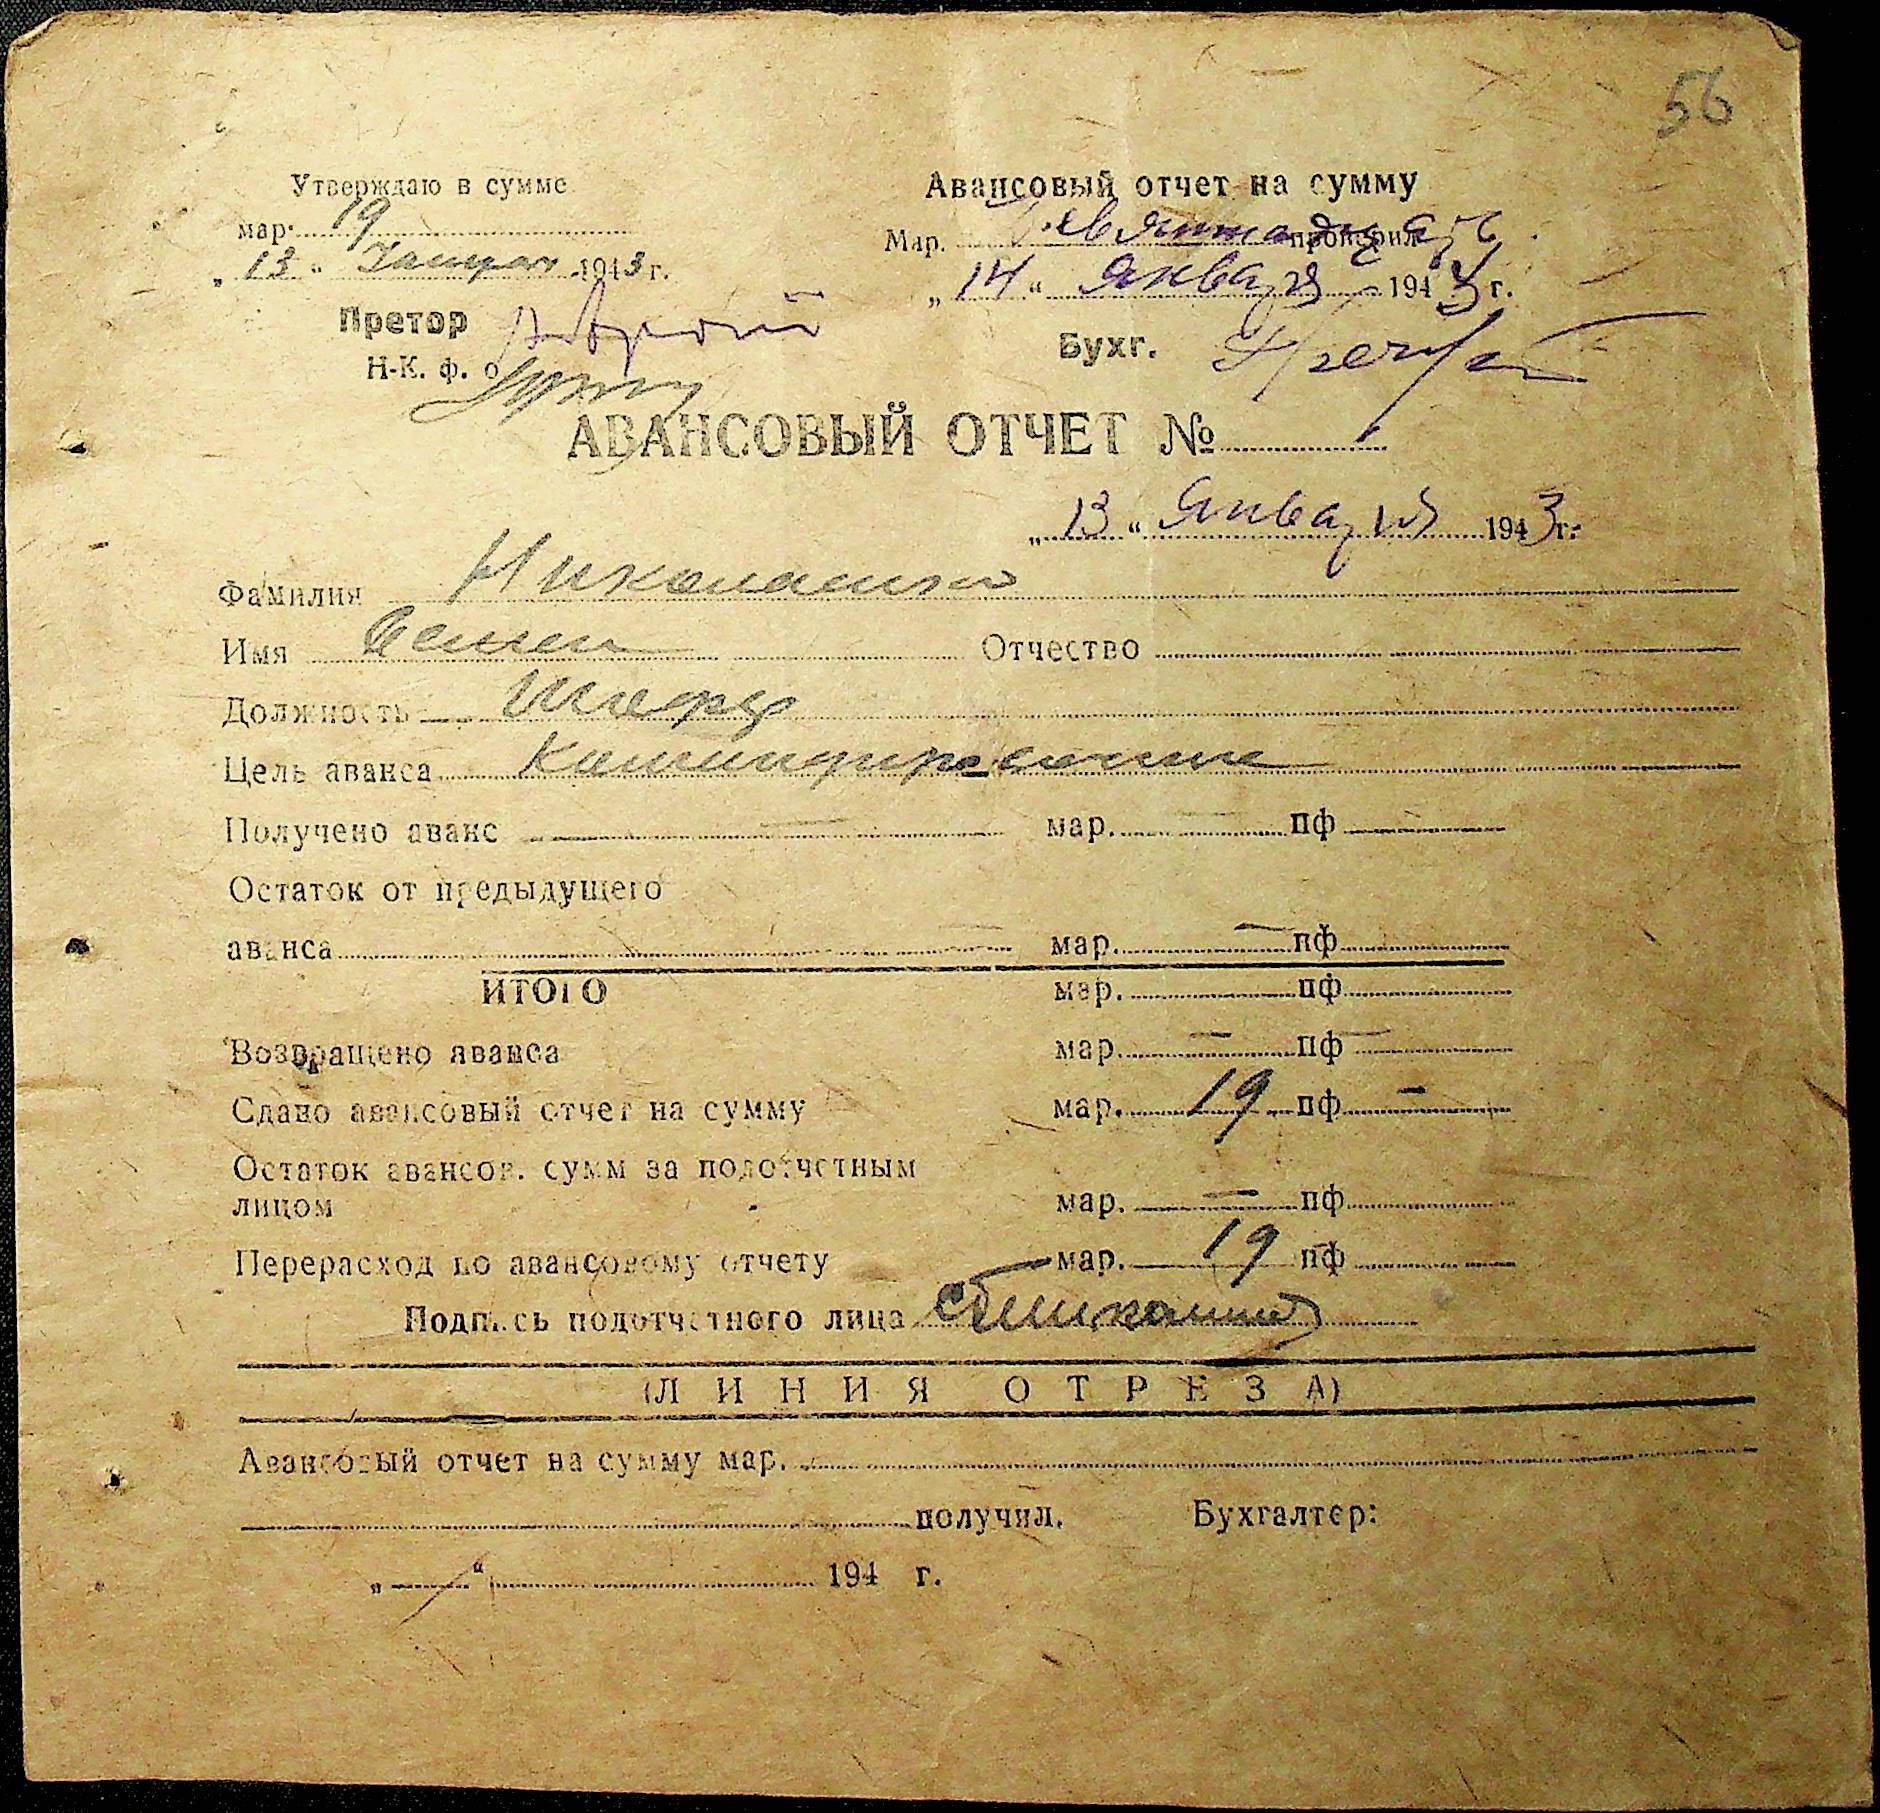 56
Утверждаю в сумме
мар. 19
„ 13 “ 1943 г.
Претор
Н-К. ф. о
Авансовый отчет на сумму
Мар. Девятнадцать проверил
„ 14 “ Января 1943 г.
Бухг.
АВАНСОВЫЙ ОТЧЕТ №
„ 13 “ Января 1943 г.
Фамилия
Имя Семен Отчество
Должность Шофер
Цель аванса
Получено аванс — мар. — пф
Остаток от предыдущего
аванса мар. — пф
ИТОГО мар. пф
Возвращено аванса мар. — пф —
Сдано авансовый отчет на сумму мар. 19 пф —
Остаток авансов. сумм за подотчетным
лицом мар. — пф
Перерасход по авансовому отчету мар. 19 пф
Подпись подотчетного лица
(ЛИНИЯ ОТРЕЗА)
Авансовый отчет на сумму мар.
получил. Бухгалтер:
„ “ 194 г.